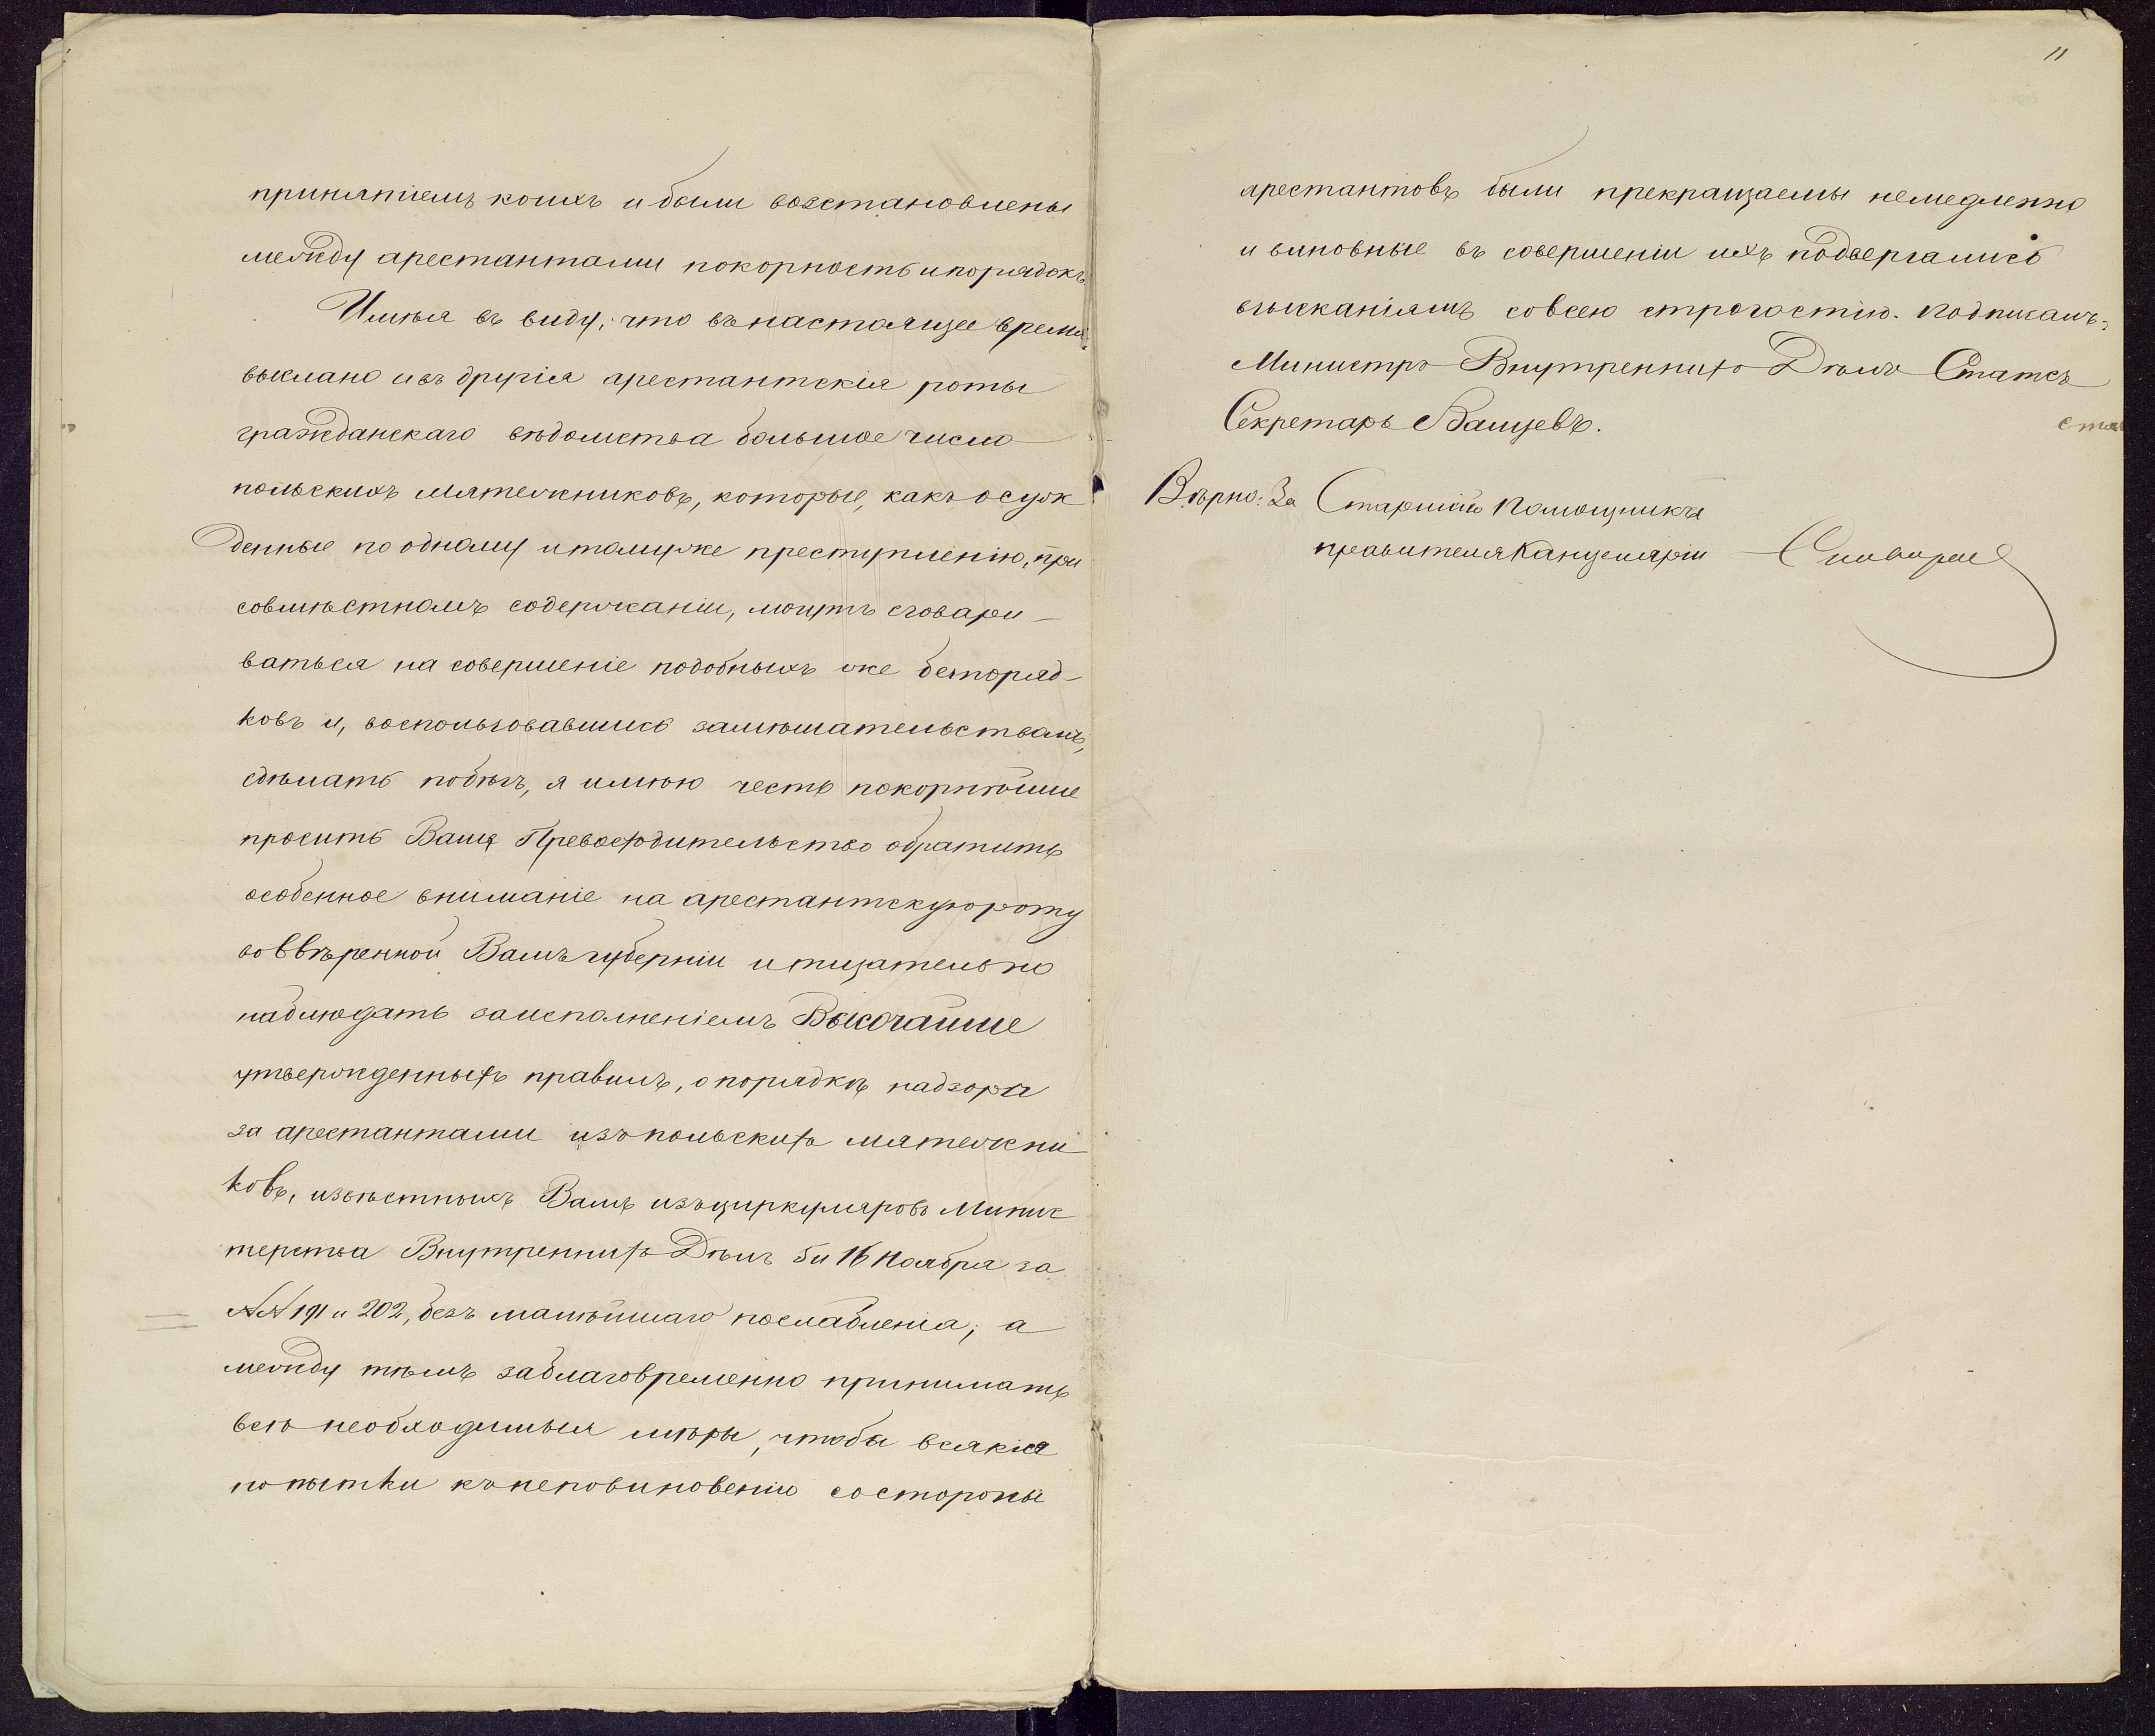 принятіемъ коихъ и были возстановлены
между арестантами покорность и порядокъ
Имѣя въ виду, что въ настоящее время
выслано и въ другія арестантскія роты
гражданскаго вѣдомства большое число
польскихъ мятежниковъ, которые, какъ осуж
денные по одному и томуже преступленію, при
совмѣстномъ содержаніи, могутъ сговари-
ваться на совершеніе подобныхъ же беспоряд-
ковъ и, воспользовавшись замѣшательствомъ,
сдѣлать побѣгъ, я имѣю честь покорнѣйше
просить Ваше Превосходительство обратить
особенное вниманіе на арестантскую роту
во ввѣренной Вамъ губерніи и тщательно
наблюдать за исполненіемъ Высочайше
утвержденныхъ правилъ, о порядкѣ надзора
за арестантами изъ польскихъ мятежни-
ковъ, извѣстныхъ Вамъ изъ циркуляровъ Минис
терства Внутреннихъ Дѣлъ 5 и 16 Ноября за
№№ 191 и 202, безъ малѣйшаго послабленія; а
между тѣмъ заблаговременно принимать
всѣ необходимыя мѣры, чтобы всякія
попытки къ неповиновенію со стороны
11
арестантовъ были прекращаемы немедленно
и виновные въ совершеніи ихъ подвергались
взысканіямъ со всею строгостію. Подписалъ:
Министръ Внутреннихъ Дѣлъ Статсъ
Секретарь Валуевъ.
Вѣрно: За Старшій Помощникъ
правителя Канцеляріи